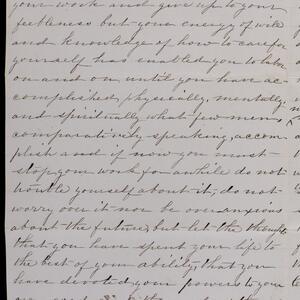 your work and give up to your
feebleness but your energy of will
and knowledge of how to care for
yourself has enabled you to labor
on and on until you have ac-
complished, physically, mentally
and spiritually what few men,
comparatively speaking, accom-
plish and if now you must
stop your work for awhile do not
trouble yourself about it; do not
worry over it nor be over anxious
about the future, but let the thought
that you have spent your life to
the best of your ability, that you
have devoted your powers to your